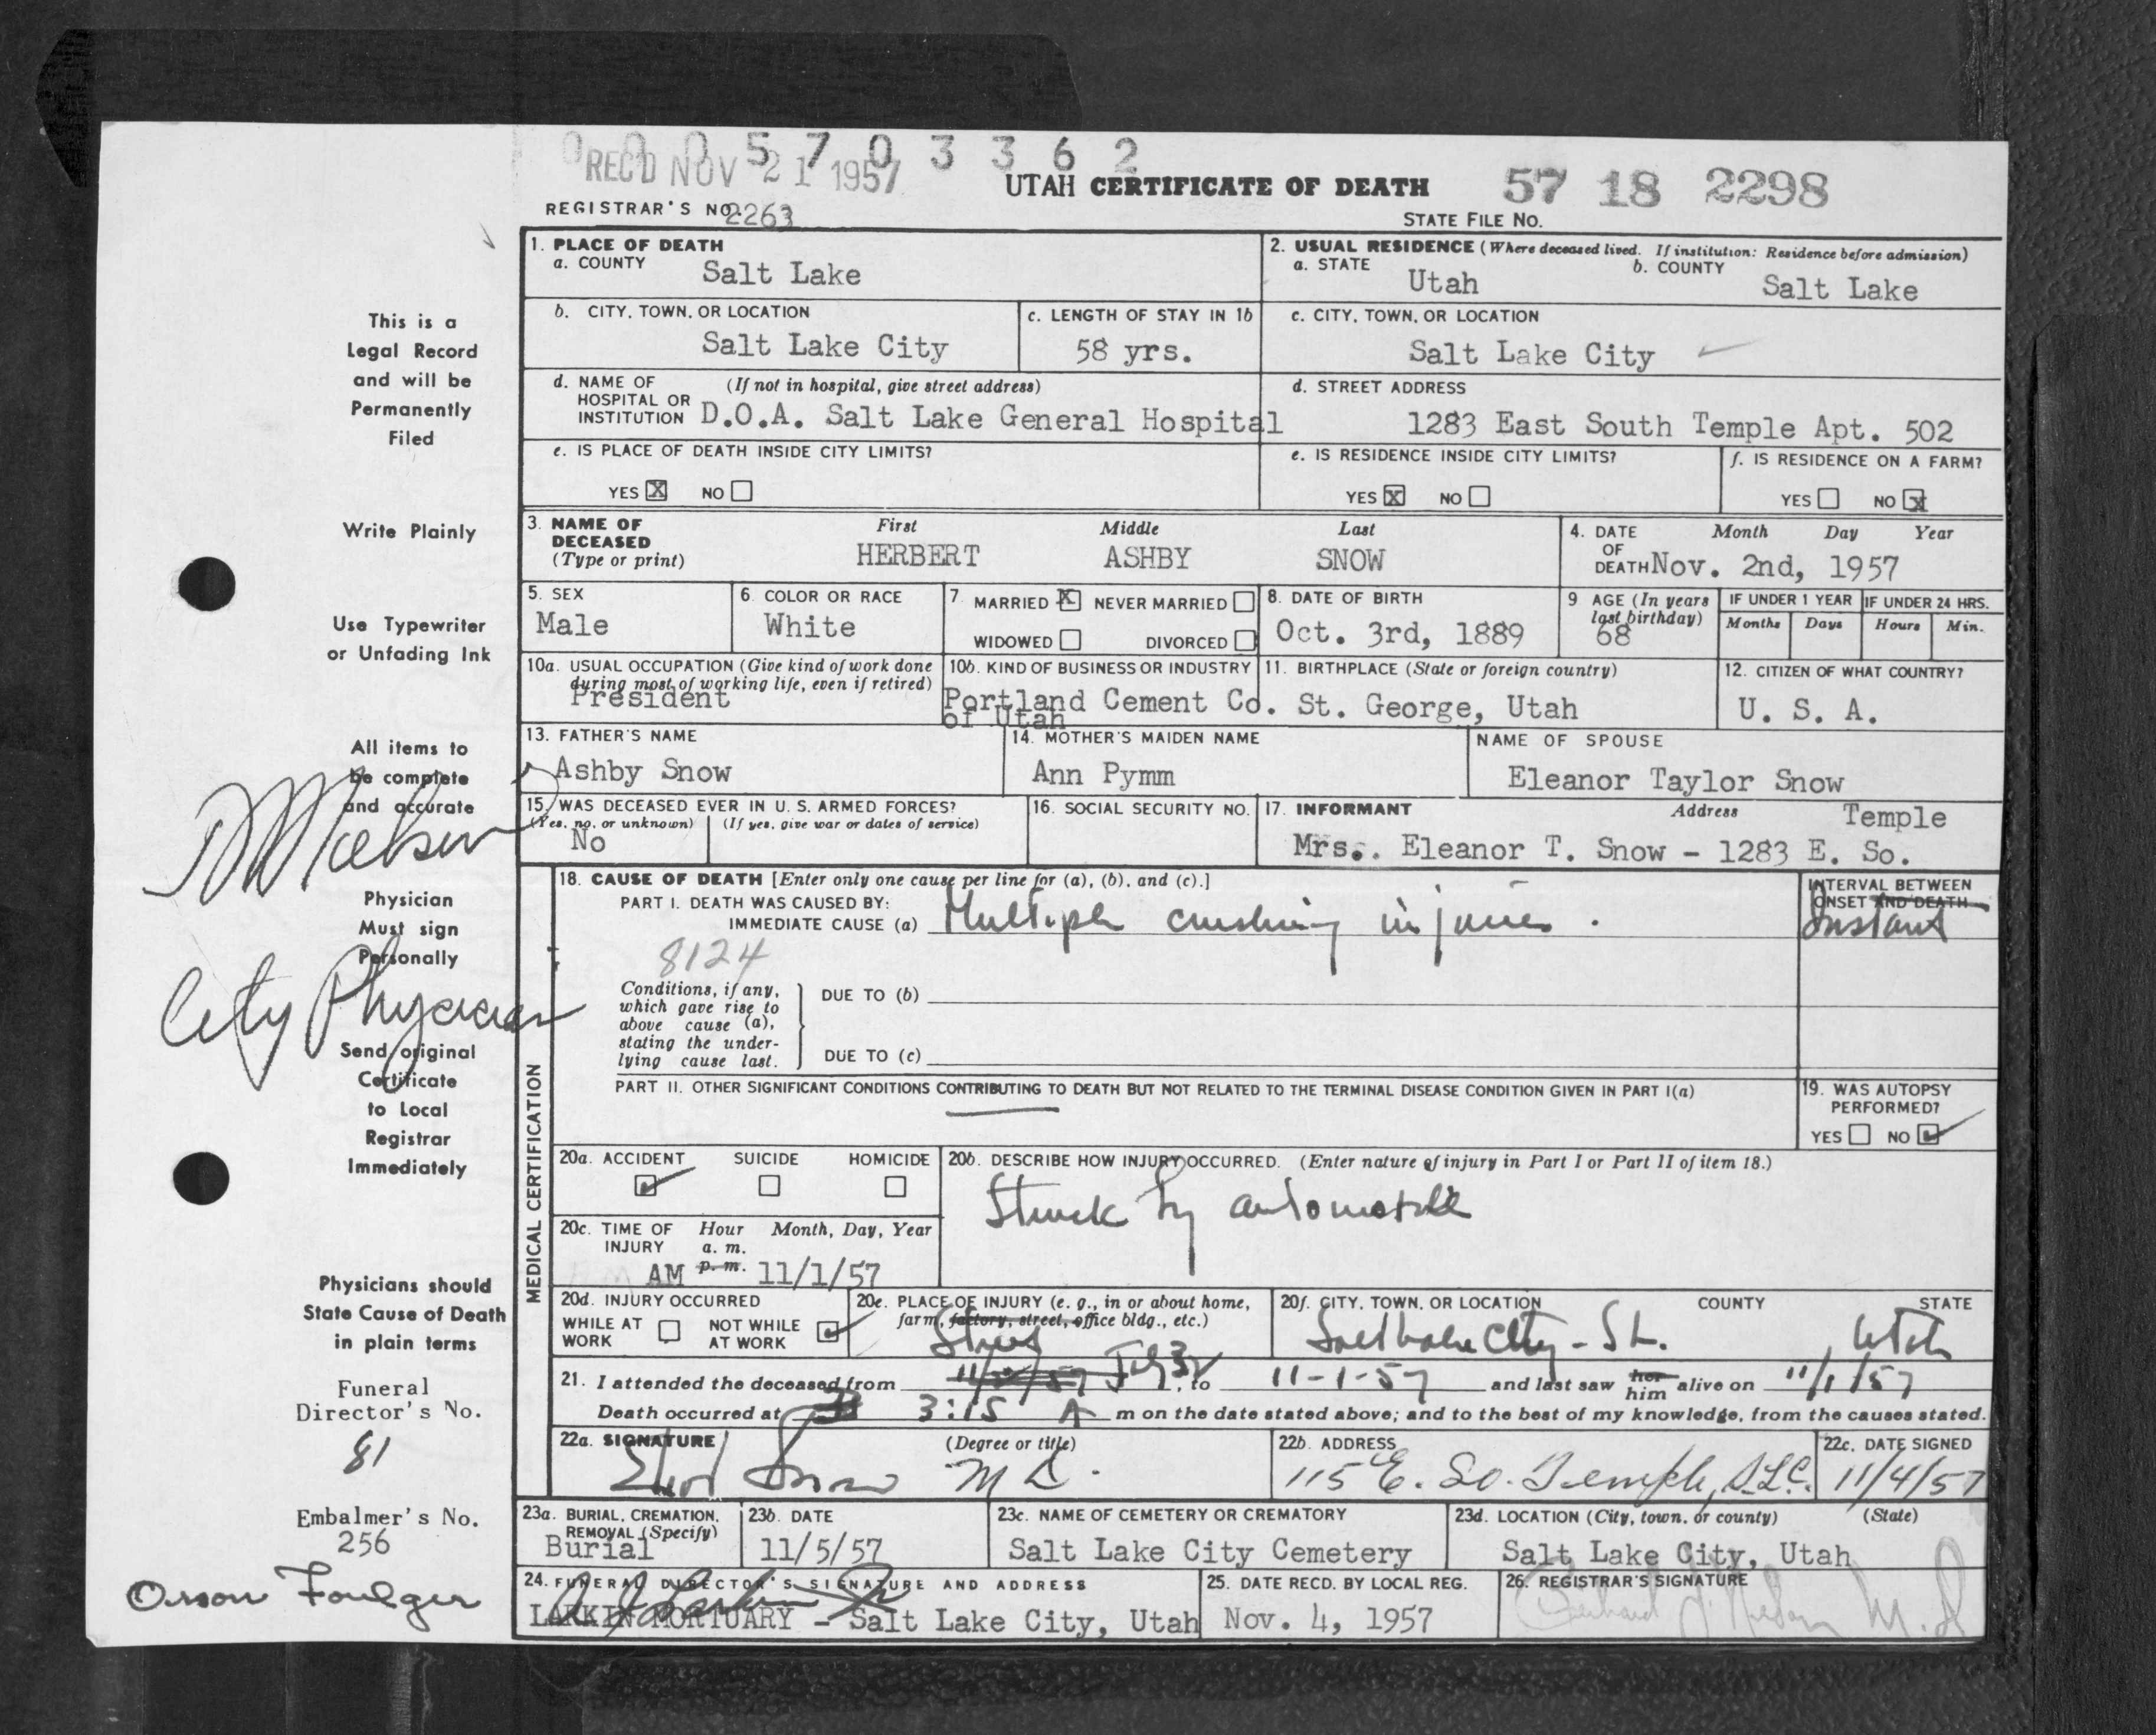 0 0 0 5 7 0 3 3 6 2
REC'D NOV 21 1957
UTAH CERTIFICATE OF DEATH
57 18 2298
REGISTRAR'S NO. 2263
STATE FILE NO.
1. PLACE OF DEATH
a. COUNTY Salt Lake
2. USUAL RESIDENCE (Where deceased lived. If institution: Residence before admission)
a. STATE Utah b. COUNTY Salt Lake
b. CITY, TOWN, OR LOCATION
Salt Lake City
c. LENGTH OF STAY IN 1b
58 yrs.
c. CITY, TOWN, OR LOCATION
Salt Lake City
d. NAME OF HOSPITAL OR INSTITUTION (If not in hospital, give street address)
D.O.A. Salt Lake General Hospital
d. STREET ADDRESS
1283 East South Temple Apt. 502
e. IS PLACE OF DEATH INSIDE CITY LIMITS?
YES X NO
e. IS RESIDENCE INSIDE CITY LIMITS?
YES X NO
f. IS RESIDENCE ON A FARM?
YES NO X
3. NAME OF DECEASED (Type or print)
First Middle Last
HERBERT ASHBY SNOW
4. DATE OF DEATH Month Day Year
Nov. 2nd, 1957
5. SEX
Male
6. COLOR OR RACE
White
7. MARRIED X NEVER MARRIED
WIDOWED DIVORCED
8. DATE OF BIRTH
Oct. 3rd, 1889
9 AGE (In years last birthday)
68
IF UNDER 1 YEAR
Months Days
IF UNDER 24 HRS.
Hours Min.
10a. USUAL OCCUPATION (Give kind of work done during most of working life, even if retired)
President
10b. KIND OF BUSINESS OR INDUSTRY
Portland Cement Co.
of Utah
11. BIRTHPLACE (State or foreign country)
St. George, Utah
12. CITIZEN OF WHAT COUNTRY?
U. S. A.
13. FATHER'S NAME
Ashby Snow
14. MOTHER'S MAIDEN NAME
Ann Pymm
NAME OF SPOUSE
Eleanor Taylor Snow
15. WAS DECEASED EVER IN U. S. ARMED FORCES?
(Yes, no, or unknown) (If yes, give war or dates of service)
No
16. SOCIAL SECURITY NO.
17. INFORMANT Address
Temple
Mrs.. Eleanor T. Snow - 1283 E. So.
MEDICAL CERTIFICATION
18. CAUSE OF DEATH [Enter only one cause per line for (a), (b), and (c).]
PART I. DEATH WAS CAUSED BY:
IMMEDIATE CAUSE (a) Multiple crushing injuries.
INTERVAL BETWEEN
ONSET AND DEATH
Instant
8124
Conditions, if any, which gave rise to above cause (a), stating the underlying cause last.
DUE TO (b)
DUE TO (c)
PART II. OTHER SIGNIFICANT CONDITIONS CONTRIBUTING TO DEATH BUT NOT RELATED TO THE TERMINAL DISEASE CONDITION GIVEN IN PART I(a)
19. WAS AUTOPSY PERFORMED?
YES NO
20a. ACCIDENT SUICIDE HOMICIDE
20b. DESCRIBE HOW INJURY OCCURRED. (Enter nature of injury in Part I or Part II of item 18.)
Struck by automobile
20c. TIME OF INJURY Hour Month, Day, Year
a. m.
AM p. m. 11/1/57
20d. INJURY OCCURRED
WHILE AT WORK NOT WHILE AT WORK
20e. PLACE OF INJURY (e. g., in or about home, farm, factory, street, office bldg., etc.)
Street
20f. CITY, TOWN, OR LOCATION COUNTY STATE
Salt Lake City - S.L. , Utah
21. I attended the deceased from , to 11-1-57 and last saw her him alive on 11/1/57
Death occurred at 3:15 A m on the date stated above; and to the best of my knowledge, from the causes stated.
22a. SIGNATURE (Degree or title)
Snow M D.
22b. ADDRESS
115 E. So. Temple, S.L.C.
22c. DATE SIGNED
11/4/57
23a. BURIAL, CREMATION, REMOVAL (Specify)
Burial
23b. DATE
11/5/57
23c. NAME OF CEMETERY OR CREMATORY
Salt Lake City Cemetery
23d. LOCATION (City, town, or county) (State)
Salt Lake City, Utah
24. FUNERAL DIRECTOR'S SIGNATURE AND ADDRESS
LARKIN MORTUARY - Salt Lake City, Utah
25. DATE RECD. BY LOCAL REG.
Nov. 4, 1957
26. REGISTRAR'S SIGNATURE
M.D
This is a
Legal Record
and will be
Permanently
Filed
Write Plainly
Use Typewriter
or Unfading Ink
All items to
be complete
and accurate
Physician
Must sign
Personally
City Physician
Send original
Certificate
to Local
Registrar
Immediately
Physicians should
State Cause of Death
in plain terms
Funeral
Director's No.
81
Embalmer's No.
256
Orson Foulger